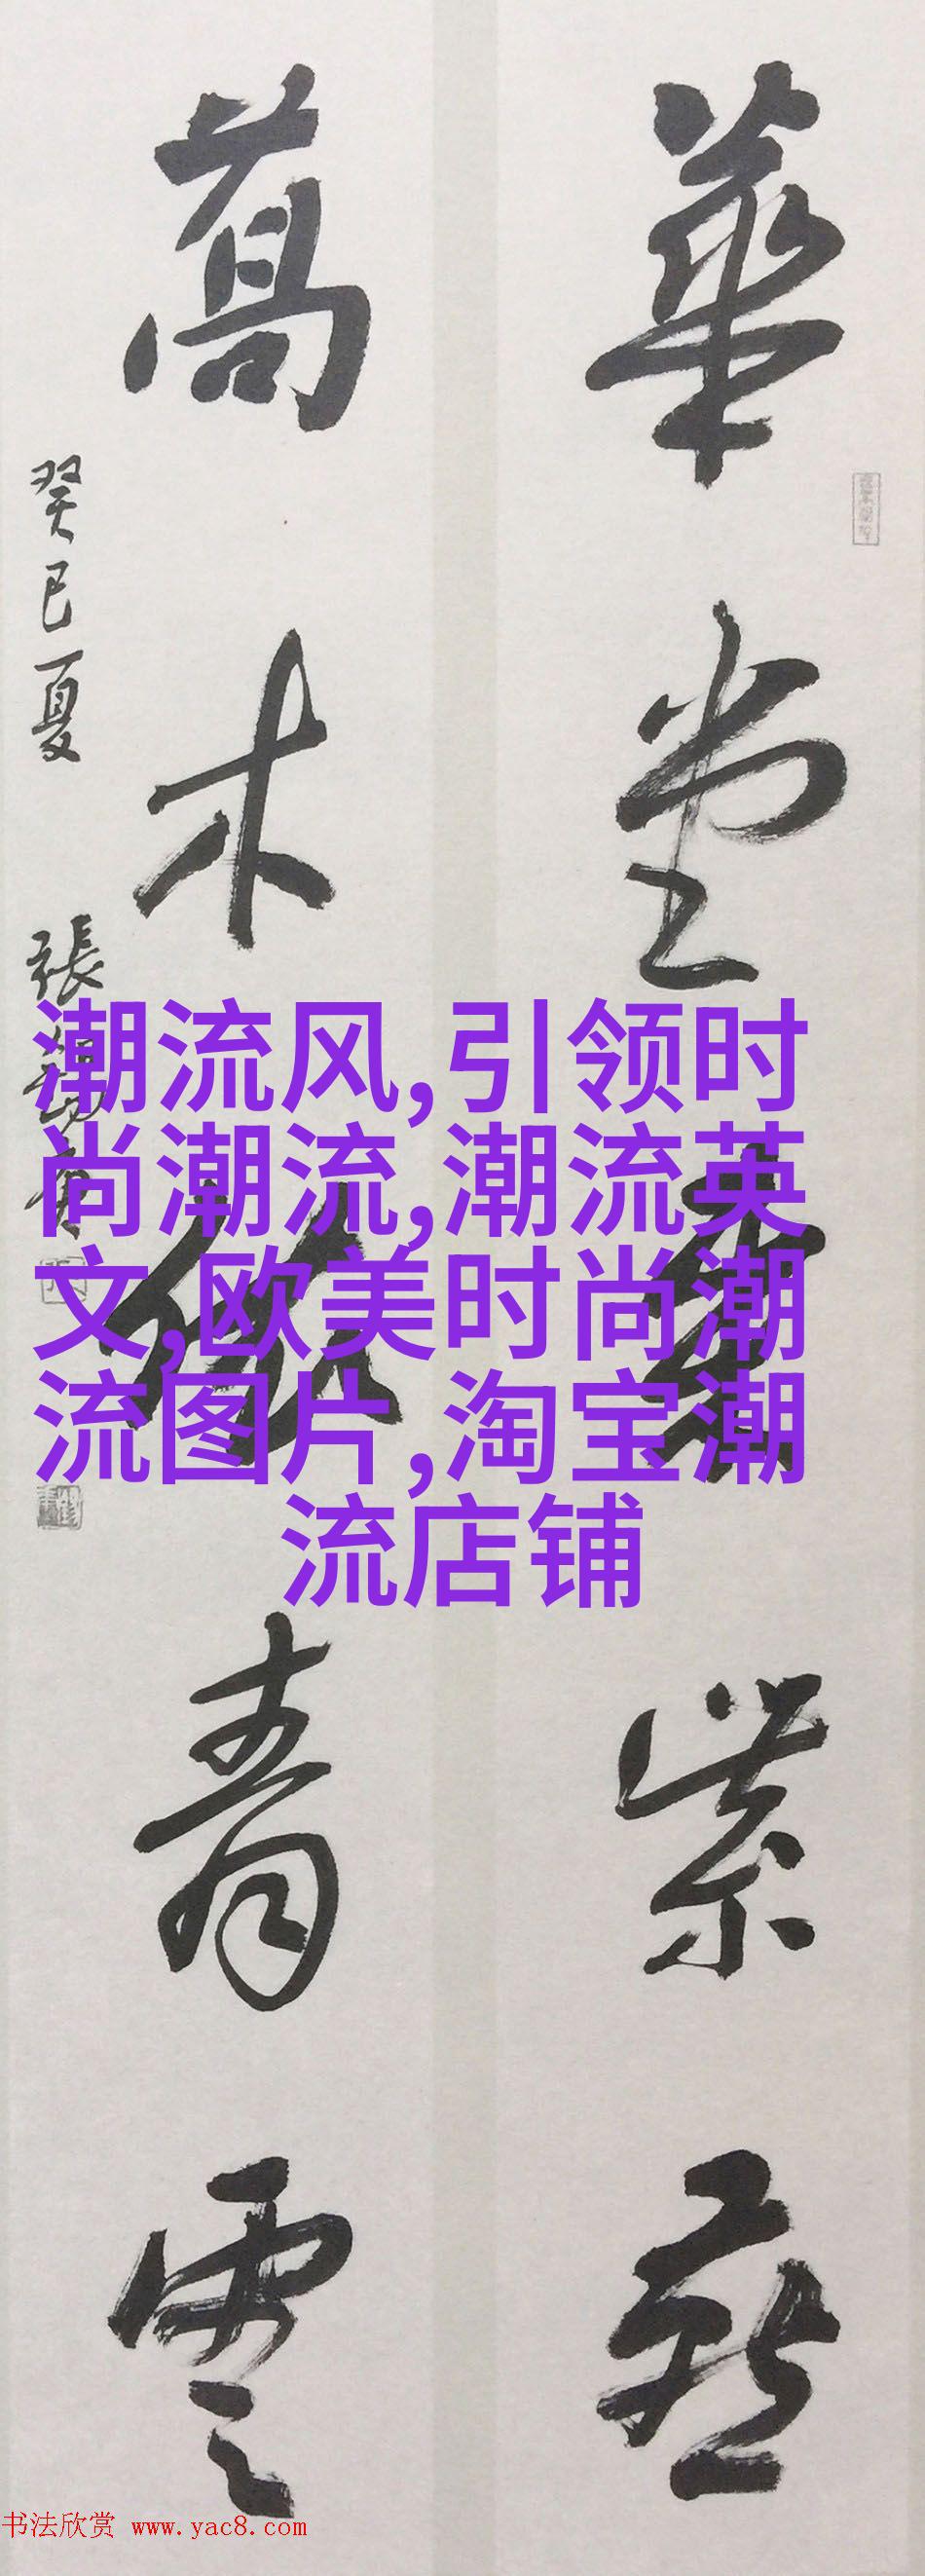 華堂
紫燕
萬木
青雲
癸巳夏
張
潮流风,引领时
尚潮流,潮流英
文,欧美时尚潮
流图片,淘宝潮
流店铺
书法欣赏 www.yac8.com